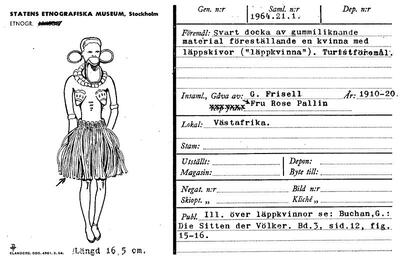 STATENS ETNOGRAFISKA MUSEUM, Stockholm
ETNOGR.
Längd 16,5 cm.
ELANDERS, GBG. 4961. 2. 54.
Gen. n:r
Saml. n:r
Dep. n:r
1964.21.1.
Föremål: Svart docka av gummiliknande
material föreställande en kvinna med
läppskivor ("läppkvinna"). Turistföremål.
Insaml., Gåva av: G. Frisell År: 1910-20.
Fru Rose Pallin
Lokal: Västafrika.
Stam:
Utställt: Depon:
Magasin: Byte till:
Negat. n:r Bild n:r
Skiopt. „ Kliché „
Publ. Ill. över läppkvinnor se: Buchan,G.:
Die Sitten der Völker. Bd.3, sid.12, fig.
15-16.